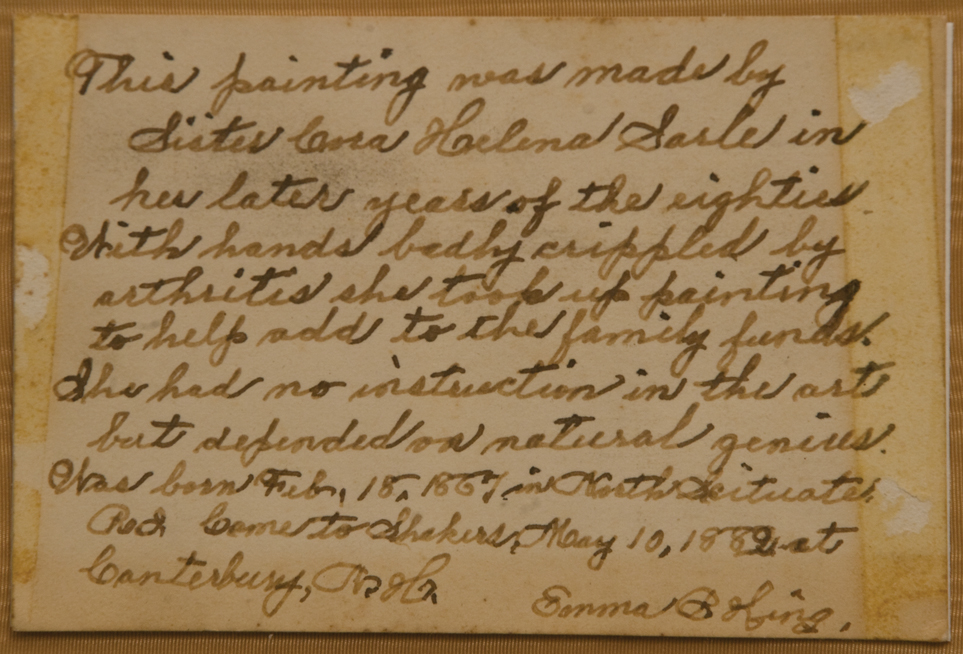 This painting was made by
Sister Cora Helena Sarle in
her later years of the eighties
With hands badly crippled by
arthritis she took up painting
to help add to the family funds.
She had no instruction in the art
but depended on natural genius.
Was born Feb, 18, 1867 in North Scituate.
Came to Shakers, May 10, 1882 at
Canterbury, N. H.
Emma B King.